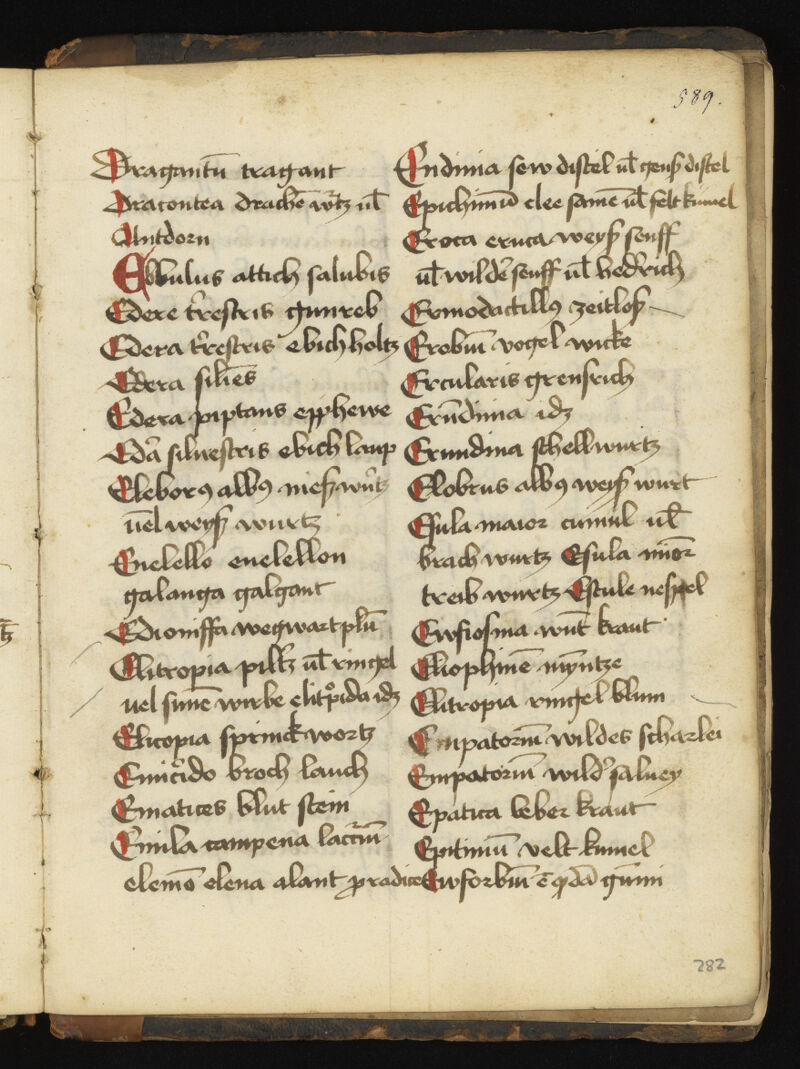 589.
Dragantū tragant
Dracontea drachē wʳtz ul̄
Antdorn
Ebbulus attich salubis
Edere tʳrestris gunreb
Edera tʳrestris ebich holtz
Edera silūēs
Edera piptans epphewe
Edā siluestris ebich laup
Eleborꝰ albꝰ nieß wūtz
ūel weyß wurtz
Enelello enelellon
galanga galgant
Edioniffa wegwart plū
Elitropia pilltz ul̄ ringel
uel sunē wirbe elitꝑida idz
Elicopia sprinck wortz
broch lauch
Ematices blut stein
Enula campena
elemō elena alant ꝓ radice
Endiuia sew distel ul̄ genß distel
Epichimū clee samē ul̄ felt kumel
Eroca eruca weyß senff
ul̄ wildeʳ senff ul̄ hedʳrich
Ermodactillꝰ zeitloß
Erobiū vogel wicke
Ercularis grensrich
Erūdinia idz
Erundina schellwurtz
Elobrus albꝰ weyß wurt
Esula maior cumul ul̄
brach wurtz Esula mīor
treib wurtz Estule nespel
Ewfiosina wūt kraut
Eliophinē myntze
Elitropia ringel blum
Enpatoriū wildes scharlei
Enpatoriū wildʳ saluey
Epatica leber kraut
Epitimū velt kumel
Ewforbiū ē qdā gūmi
282